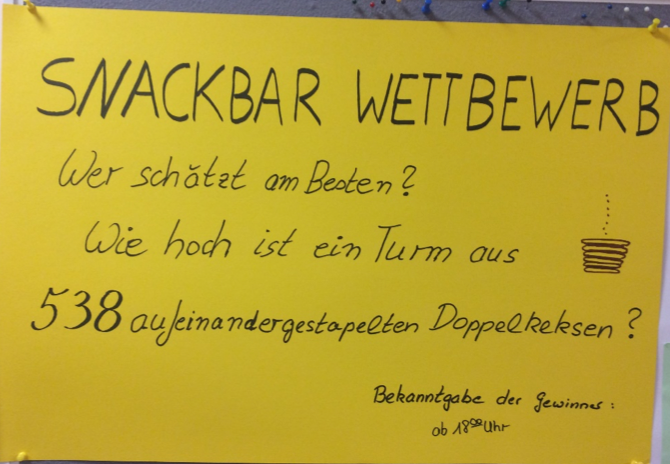 SNACKBAR WETTBEWERB
Wer schätzt am Besten?
Wie hoch ist ein Turm aus
538 aufeinandergestapelten Doppelkeksen?
Bekanntgabe der Gewinner:
ab 18⁰⁰ Uhr